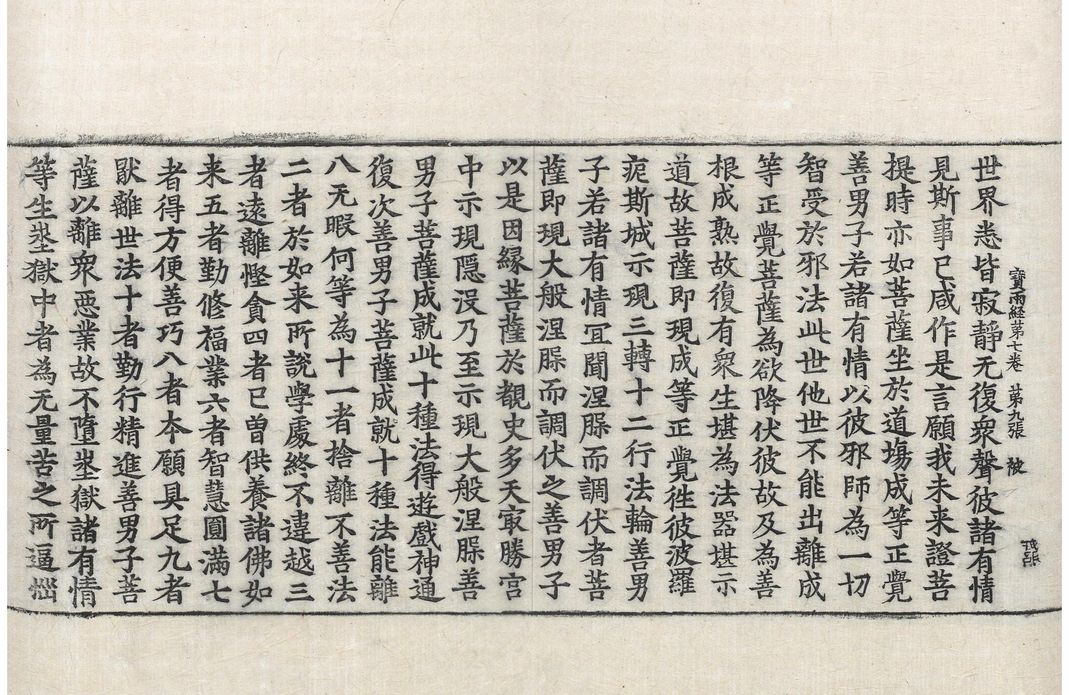 寶雨經第七卷 第九張 陂
世界悉皆寂靜无復衆聲彼諸有情
見斯事已咸作是言願我未来證菩
提時亦如菩薩坐於道場成等正覺
善男子若諸有情以彼邪師為一切
智受於邪法此世他世不能出離成
等正覺菩薩為欲降伏彼故及為善
根成熟故復有衆生堪為法器堪示
道故菩薩即現成等正覺徃彼波羅
痆斯城示現三轉十二行法輪善男
子若諸有情冝聞涅槃而調伏者菩
薩即現大般涅槃而調伏之善男子
以是因縁菩薩於覩史多天㝡勝宮
中示現隠沒乃至示現大般涅槃善
男子菩薩成就此十種法得遊戲神通
復次善男子菩薩成就十種法能離
八无暇何等為十一者捨離不善法
二者於如来所說學處終不違越三
者遠離慳貪四者已曽供養諸佛如
来五者勤修福業六者智慧圓滿七
者得方便善巧八者夲願具足九者
猒離世法十者勤行精進善男子菩
薩以離衆惡業故不墮埊獄諸有情
等生埊獄中者為无量苦之所逼惱